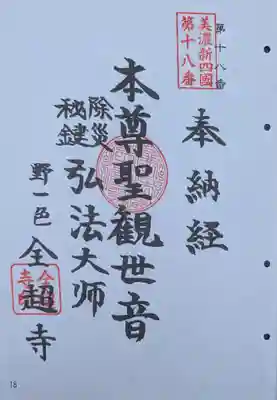 第十八番
美濃新四國
第十八番
奉納経
本尊聖観世音
除災
秘鍵
弘法大師
野一邑
全超寺
18